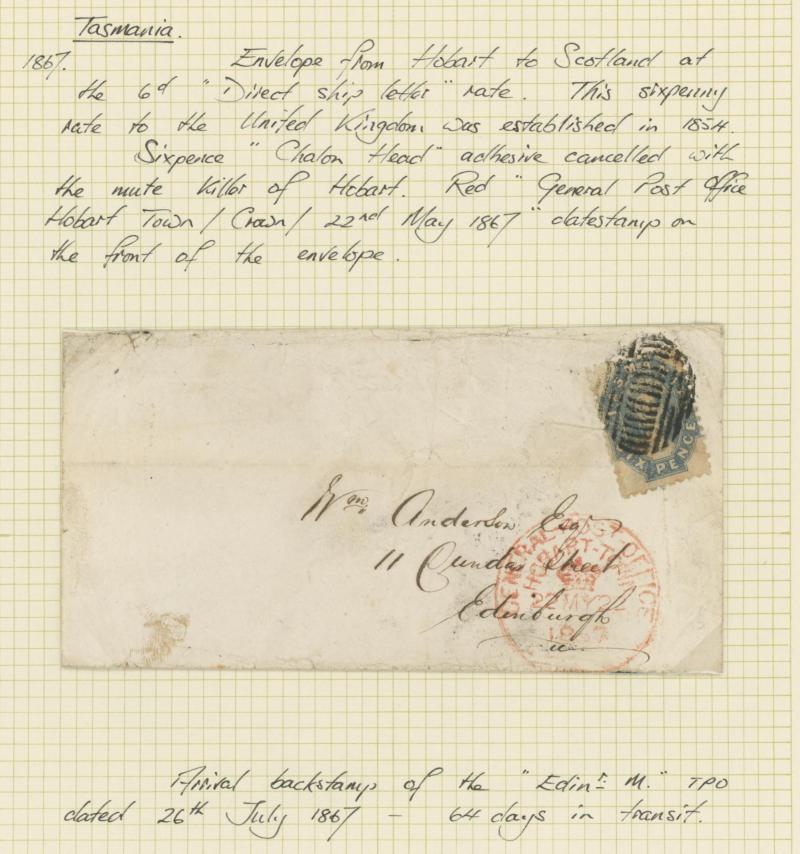 Tasmania.
1867. Envelope from Hobart to Scotland at
the 6d "Direct ship letter" rate. This sixpenny
rate to the United Kingdom was established in 1854.
Sixpence "Chalon Head" adhesive cancelled with
the mute killer of Hobart. Red "General Post Office
Hobart Town / Crown / 22nd May 1867" datestamp on
the front of the envelope.
SIX PENCE
Wm. Anderson Esqr
11 Dundas Street
Edinburgh
GENERAL POST OFFICE
HOBART-TOWN
22 MY 22
1867
Arrival backstamp of the "Edinr. M." TPO
dated 26th July 1867 - 64 days in transit.